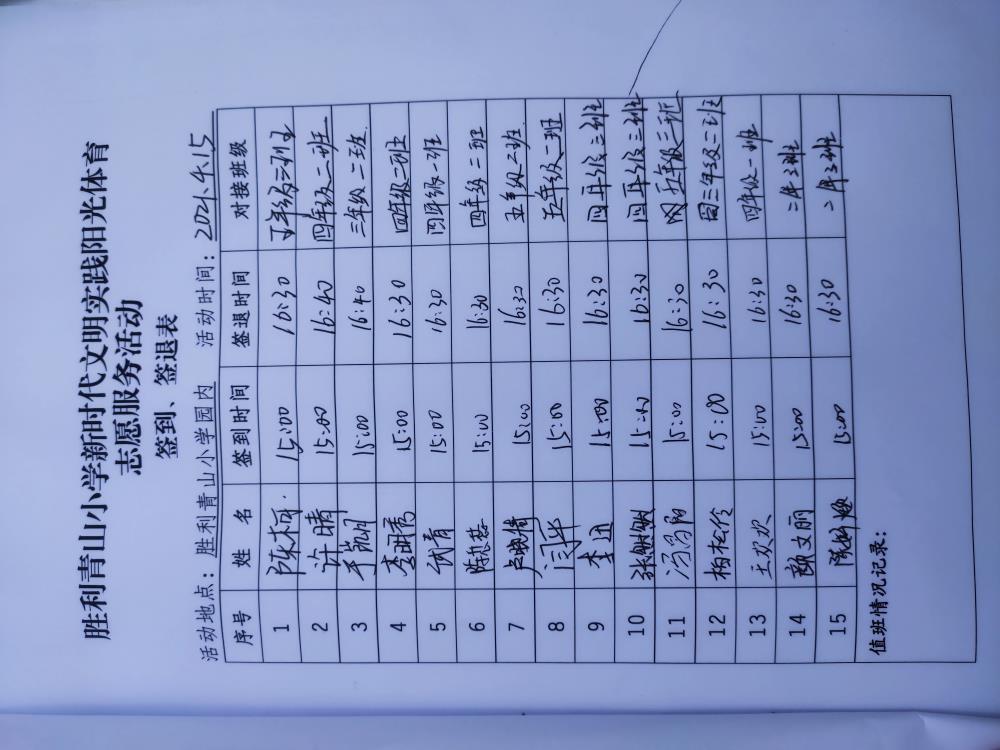 胜利青山小学新时代文明实践阳光体育
志愿服务活动
签到、签退表
活动地点：胜利青山小学园内 活动时间：2021.4.15
序号 姓 名 签到时间 签退时间 对接班级
1 陈柯 15:00 16:30 年级三班
2 许晴 15:00 16:40 四年级二班
3 15:00 16:40 三年级二班
4 李明秀 15:00 16:30 四年级二班
5 15:00 16:30 四年级一班
6 陈 15:00 16:30 四年级二班
7 卢晓倩 15:00 16:30 五年级二班
8 闫华 15:00 16:30 五年级二班
9 李 15:00 16:30 四年级三班
10 张敏敏 15:00 16:30 四年级三班
11 冯 15:00 16:30 五年级三班
12 杨松伶 15:00 16:30 三年级二班
13 王欢欢 15:00 16:30 四年级一班
14 文丽 15:00 16:30 二年3班
15 陈 15:00 16:30 二年3班
值班情况记录：